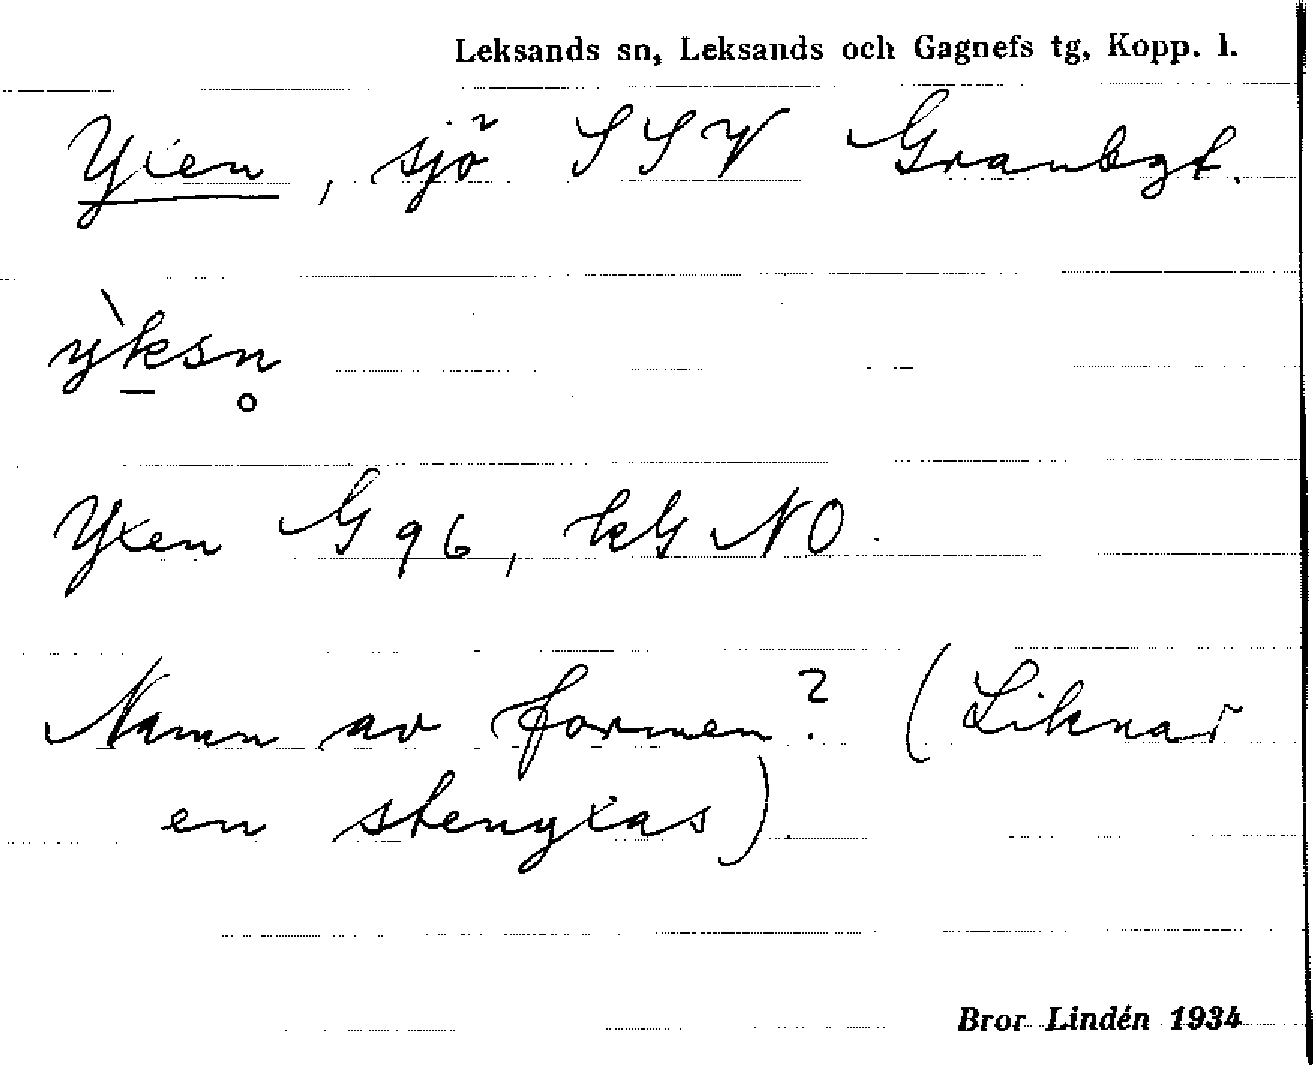 Leksands sn, Leksands och Gagnefs tg, Kopp. l.
Yxen, sjö SSV Granbgt.
ỳk̲sn̥
Yxen G 96, kG NO.
Namn av formen? (Liknar
en stenyxas).
Bror Lindén 1934